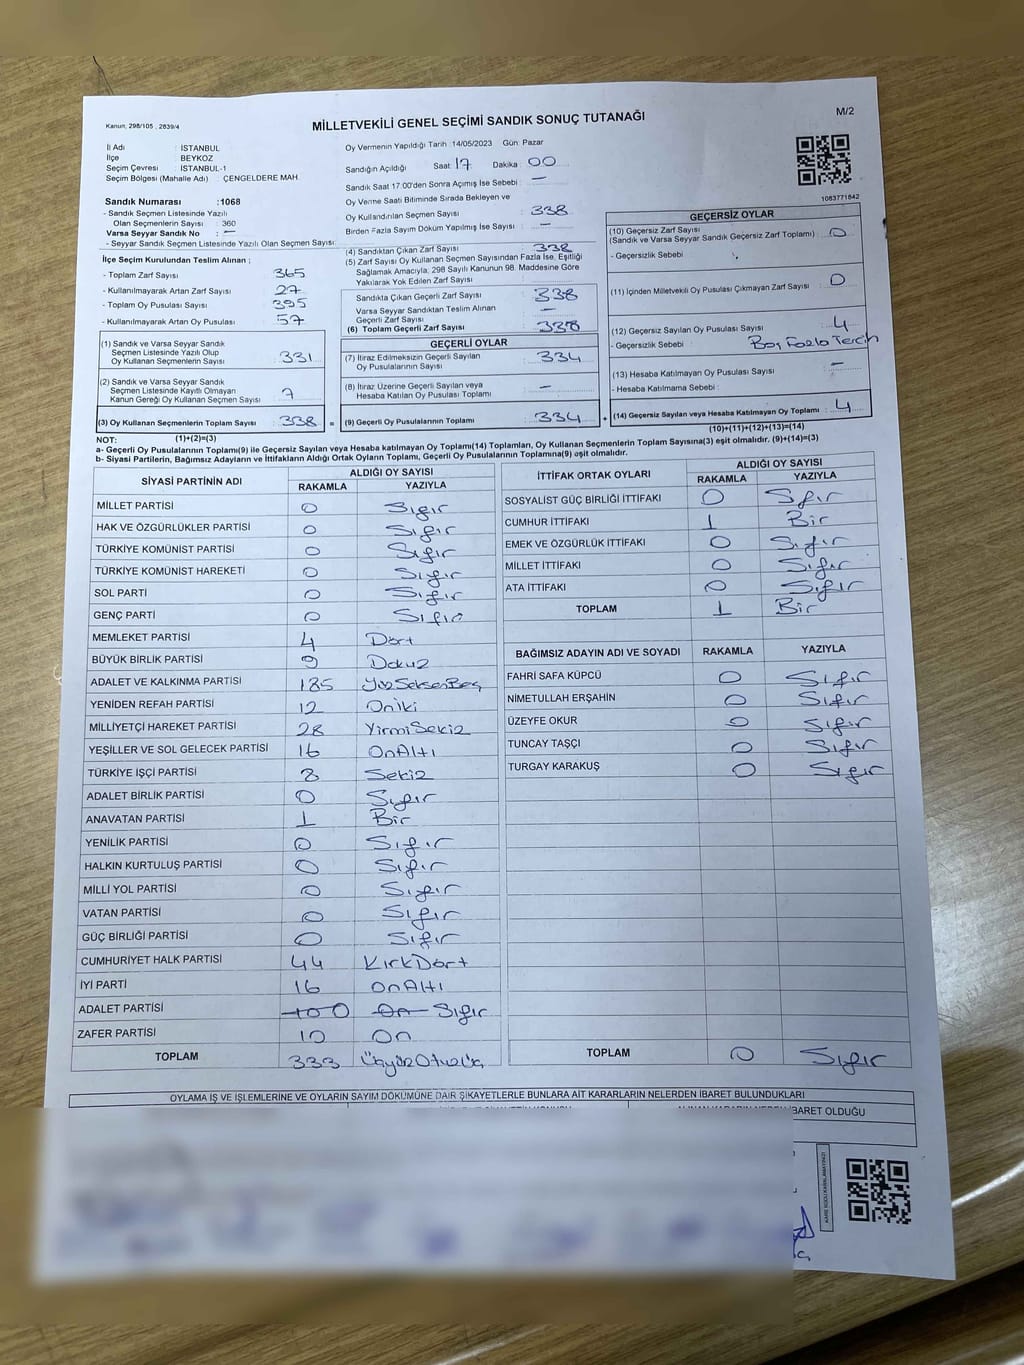 M/2
Kanun, 298/105 , 2839/4
MİLLETVEKİLİ GENEL SEÇİMİ SANDIK SONUÇ TUTANAĞI
İl Adı : İSTANBUL
İlçe BEYKOZ
Seçim Çevresi : İSTANBUL-1
Seçim Bölgesi (Mahalle Adı) : ÇENGELDERE MAH.
Sandık Numarası :1068
- Sandık Seçmen Listesinde Yazılı
Olan Seçmenlerin Sayısı : 360
Varsa Seyyar Sandık No : —
- Seyyar Sandık Seçmen Listesinde Yazılı Olan Seçmen Sayısı:
İlçe Seçim Kurulundan Teslim Alınan ;
- Toplam Zarf Sayısı 365
- Kullanılmayarak Artan Zarf Sayısı : 27
- Toplam Oy Pusulası Sayısı : 395
- Kullanılmayarak Artan Oy Pusulası : 57
(1) Sandık ve Varsa Seyyar Sandık
Seçmen Listesinde Yazılı Olup
Oy Kullanan Seçmenlerin Sayısı : 331
(2) Sandık ve Varsa Seyyar Sandık
Seçmen Listesinde Kayıtlı Olmayan
Kanun Gereği Oy Kullanan Seçmen Sayısı : 7
(3) Oy Kullanan Seçmenlerin Toplam Sayısı : 338
(1)+(2)=(3)
Oy Vermenin Yapıldığı Tarih :14/05/2023 Gün: Pazar
Sandığın Açıldığı Saat: 17 Dakika : 00
Sandık Saat 17:00'den Sonra Açımış İse Sebebi : —
Oy Verme Saati Bitiminde Sırada Bekleyen ve
Oy Kullandırılan Seçmen Sayısı : 338
Birden Fazla Sayım Döküm Yapılmış İse Sayısı : —
(4) Sandıktan Çıkan Zarf Sayısı : 338
(5) Zarf Sayısı Oy Kullanan Seçmen Sayısından Fazla İse, Eşitliği
Sağlamak Amacıyla; 298 Sayılı Kanunun 98. Maddesine Göre
Yakılarak Yok Edilen Zarf Sayısı
Sandıkta Çıkan Geçerli Zarf Sayısı : 338
Varsa Seyyar Sandıktan Teslim Alınan
Geçerli Zarf Sayısı : —
(6) Toplam Geçerli Zarf Sayısı : 338
GEÇERLİ OYLAR
(7) İtiraz Edilmeksizin Geçerli Sayılan
Oy Pusulasının Sayısı : 334
(8) İtiraz Üzerine Geçerli Sayılan veya
Hesaba Katılan Oy Pusulası Toplamı : —
= (9) Geçerli Oy Pusulalarının Toplamı : 334 +
1083771642
GEÇERSİZ OYLAR
(10) Geçersiz Zarf Sayısı
(Sandık ve Varsa Seyyar Sandık Geçersiz Zarf Toplamı) : 0
- Geçersizlik Sebebi
(11) İçinden Milletvekili Oy Pusulası Çıkmayan Zarf Sayısı : 0
(12) Geçersiz Sayılan Oy Pusulası Sayısı : 4
- Geçersizlik Sebebi : Boş Fazla Tercih
(13) Hesaba Katılmayan Oy Pusulası Sayısı : —
- Hesaba Katılmama Sebebi :
(14) Geçersiz Sayılan veya Hesaba Katılmayan Oy Toplamı : 4
(10)+(11)+(12)+(13)=(14)
NOT:
a- Geçerli Oy Pusulalarının Toplamı(9) ile Geçersiz Sayılan veya Hesaba katılmayan Oy Toplamı(14) Toplamları, Oy Kullanan Seçmenlerin Toplam Sayısına(3) eşit olmalıdır. (9)+(14)=(3)
b- Siyasi Partilerin, Bağımsız Adayların ve İttifakların Aldığı Ortak Oyların Toplamı, Geçerli Oy Pusulalarının Toplamına(9) eşit olmalıdır.
SİYASİ PARTİNİN ADI ALDIĞI OY SAYISI
RAKAMLA YAZIYLA
MİLLET PARTİSİ 0 Sıfır
HAK VE ÖZGÜRLÜKLER PARTİSİ 0 Sıfır
TÜRKİYE KOMÜNİST PARTİSİ 0 Sıfır
TÜRKİYE KOMÜNİST HAREKETİ 0 Sıfır
SOL PARTİ 0 Sıfır
GENÇ PARTİ 0 Sıfır
MEMLEKET PARTİSİ 4 Dört
BÜYÜK BİRLİK PARTİSİ 9 Dokuz
ADALET VE KALKINMA PARTİSİ 185 YüzSeksenBeş
YENİDEN REFAH PARTİSİ 12 Oniki
MİLLİYETÇİ HAREKET PARTİSİ 28 YirmiSekiz
YEŞİLLER VE SOL GELECEK PARTİSİ 16 OnAltı
TÜRKİYE İŞÇİ PARTİSİ 8 Sekiz
ADALET BİRLİK PARTİSİ 0 Sıfır
ANAVATAN PARTİSİ 1 Bir
YENİLİK PARTİSİ 0 Sıfır
HALKIN KURTULUŞ PARTİSİ 0 Sıfır
MİLLİ YOL PARTİSİ 0 Sıfır
VATAN PARTİSİ 0 Sıfır
GÜÇ BİRLİĞİ PARTİSİ 0 Sıfır
CUMHURİYET HALK PARTİSİ 44 KırkDört
İYİ PARTİ 16 OnAltı
ADALET PARTİSİ 10 0 On Sıfır
ZAFER PARTİSİ 10 On
TOPLAM 333 ÜçyüzOtuzÜç
İTTİFAK ORTAK OYLARI ALDIĞI OY SAYISI
RAKAMLA YAZIYLA
SOSYALİST GÜÇ BİRLİĞİ İTTİFAKI 0 Sıfır
CUMHUR İTTİFAKI 1 Bir
EMEK VE ÖZGÜRLÜK İTTİFAKI 0 Sıfır
MİLLET İTTİFAKI 0 Sıfır
ATA İTTİFAKI 0 Sıfır
TOPLAM 1 Bir
BAĞIMSIZ ADAYIN ADI VE SOYADI RAKAMLA YAZIYLA
FAHRİ SAFA KÜPCÜ 0 Sıfır
NİMETULLAH ERŞAHİN 0 Sıfır
ÜZEYFE OKUR 0 Sıfır
TUNCAY TAŞÇI 0 Sıfır
TURGAY KARAKUŞ 0 Sıfır
TOPLAM 0 Sıfır
OYLAMA İŞ VE İŞLEMLERİNE VE OYLARIN SAYIM DÖKÜMÜNE DAİR ŞİKAYETLERLE BUNLARA AİT KARARLARIN NELERDEN İBARET BULUNDUKLARI
İBARET OLDUĞU
KARE KODU KARALAMAYINIZ!